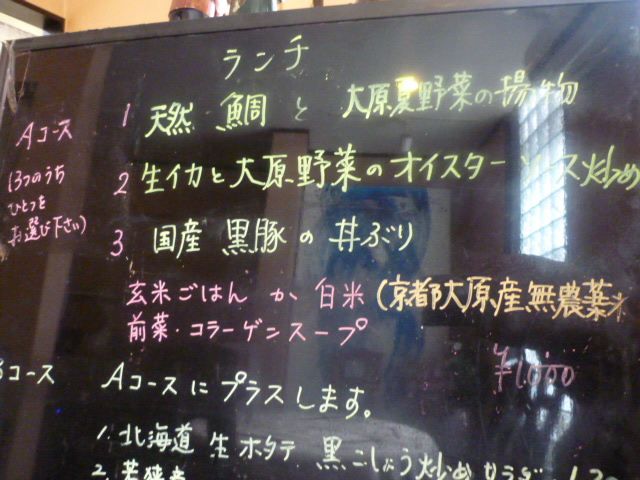 ランチ
Aコース
(3つのうち
ひとつを
お選び下さい)
1 天然 鯛 と 大原夏野菜の揚物
2 生イカと大原野菜のオイスターソース炒め
3 国産 黒豚の丼ぶり
玄米ごはん か 白米 (京都大原産無農薬米
前菜・コラーゲンスープ
¥1,000
Bコース Aコースにプラスします。
1. 北海道 生ホタテ 黒こしょう炒め サラダ
2. 若狭